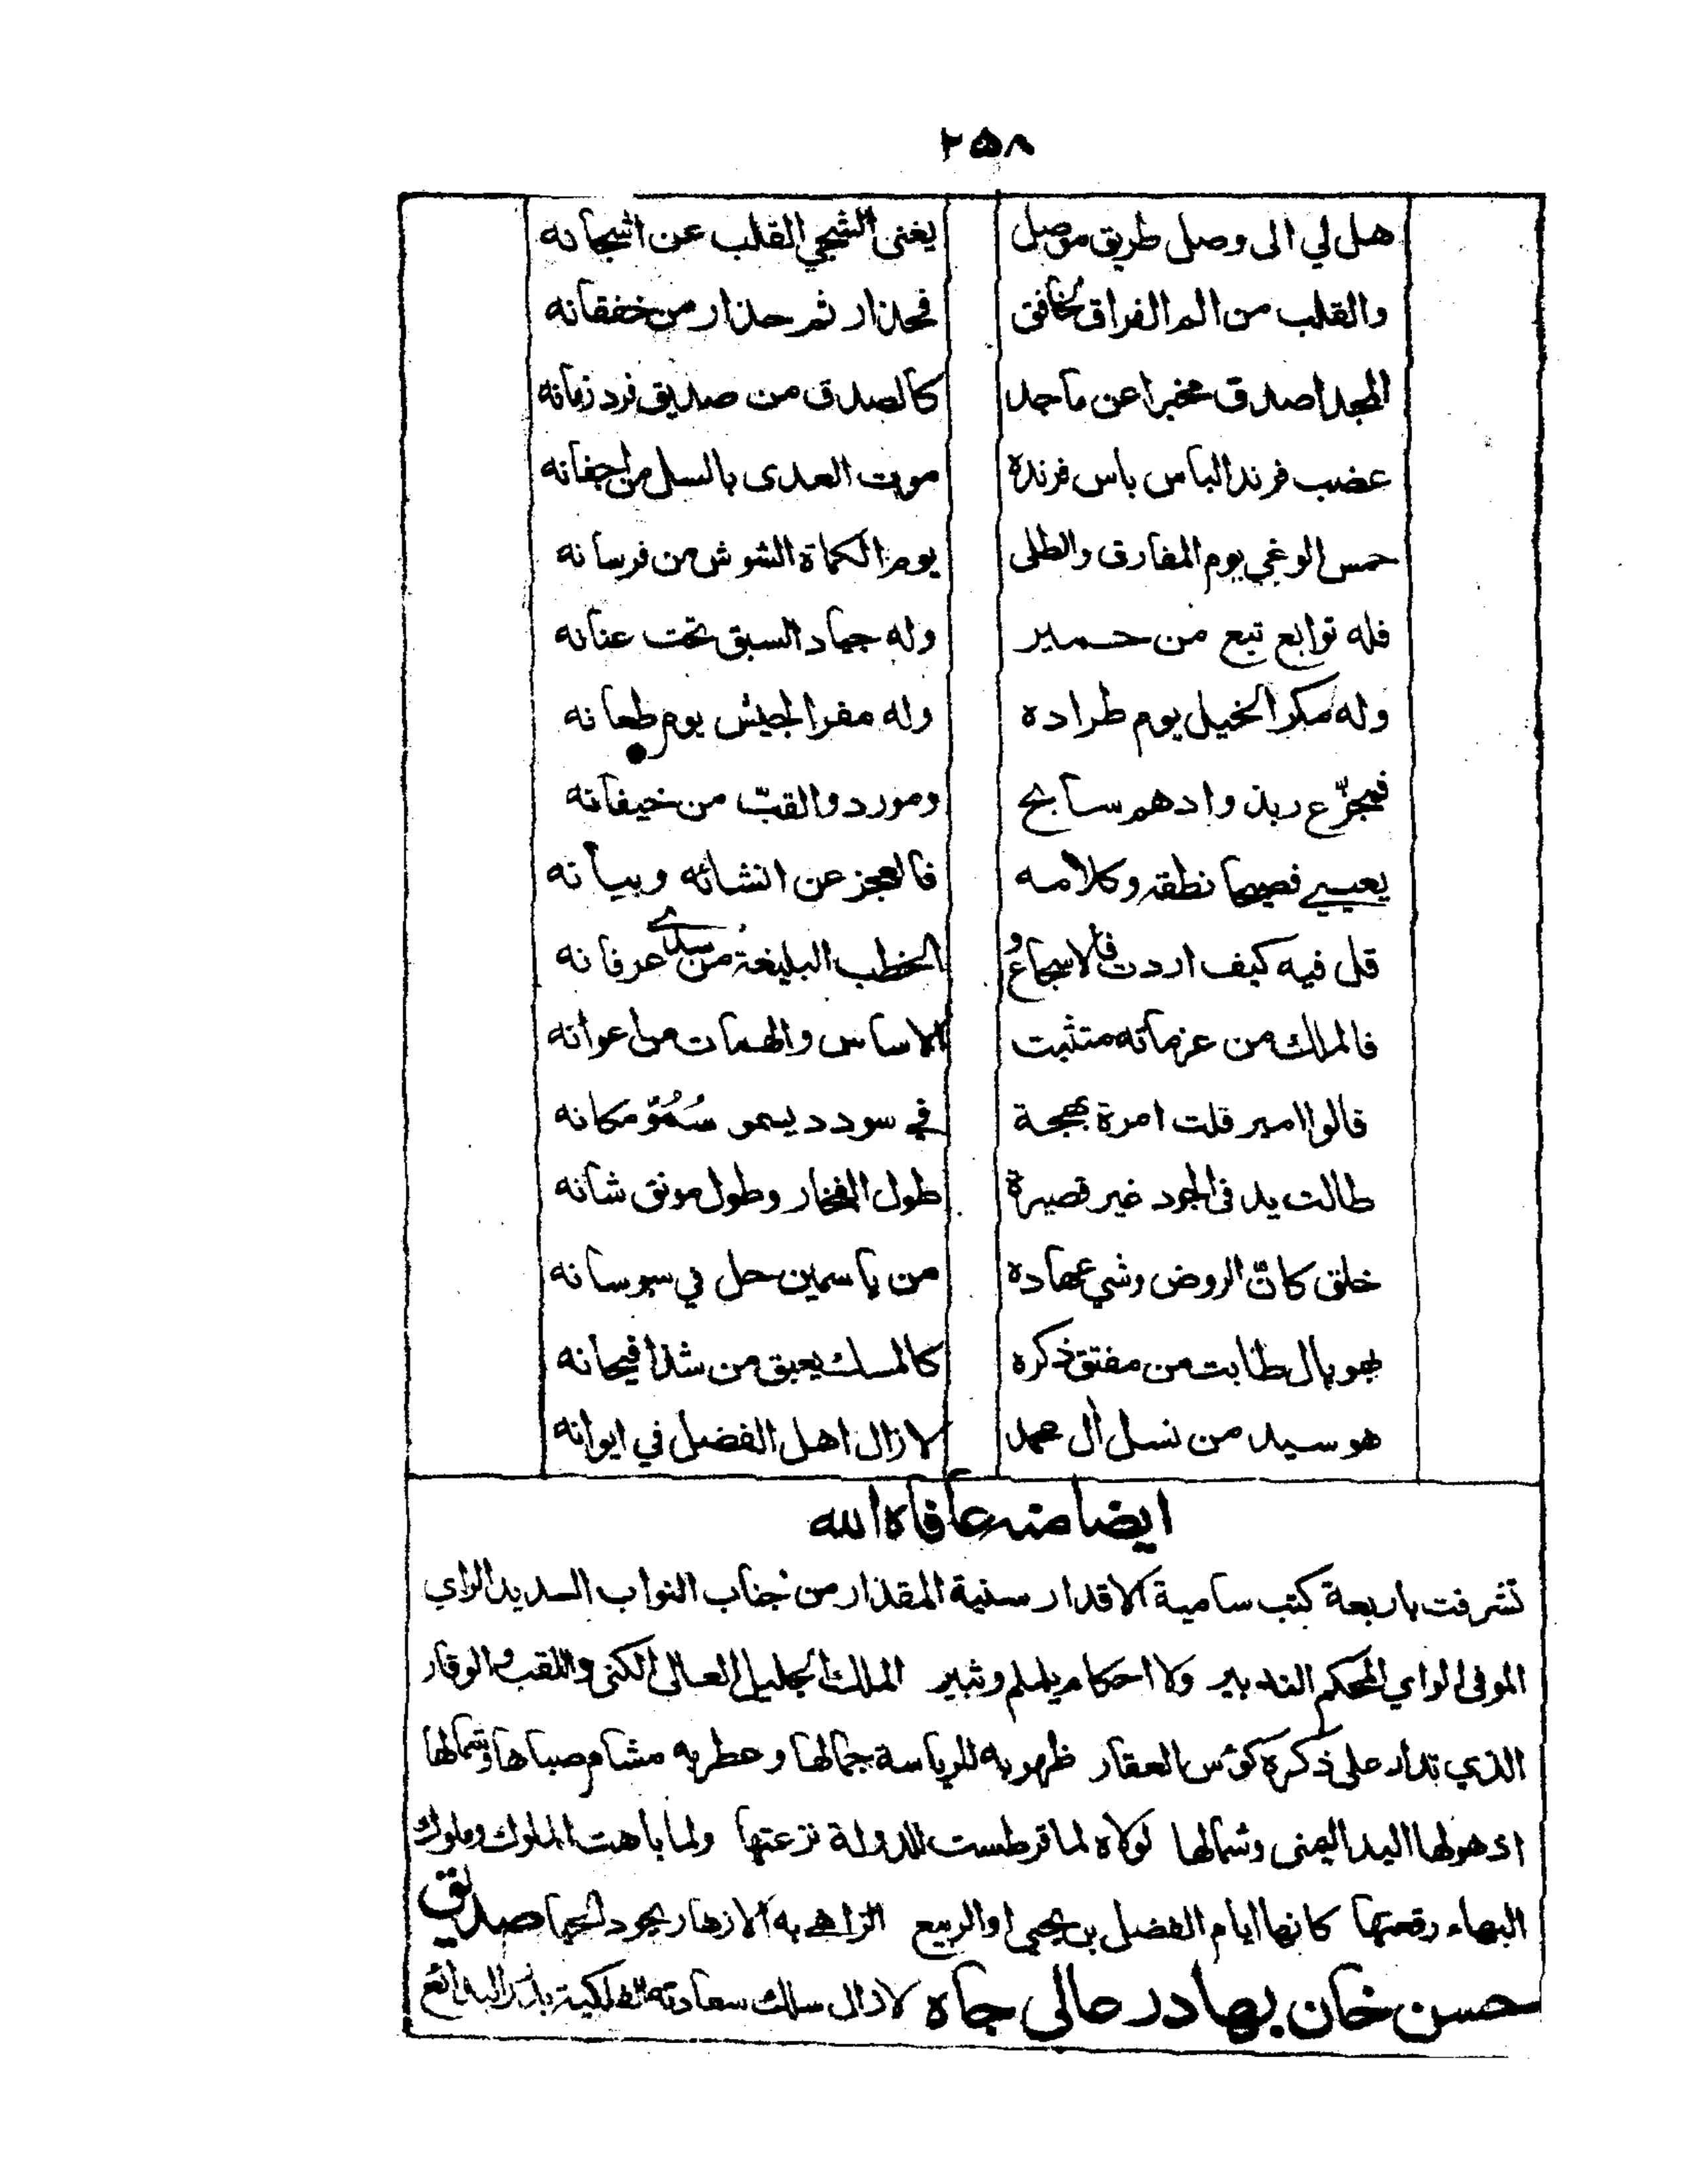 ٢٥٨
هل لي الى وصل طريق موصل يغنى الشجي القلب عن اشجانه
والقلب من الم الفراق لخافق فحذار ثم حذار من خفقانه
المجد اصدق مخبرا عن ماجد كالصدق من صديق فرد زمانه
عضب فرند الباس باس فرنده موت العدى بالسل من اجفانه
حمس الوغي يوم المفارق والطلى يوم الكماة الشوش من فرسانه
فله توابع تبع من حمير وله جياد السبق تحت عنانه
وله مكر الخيل يوم طراده وله مفر الجيش يوم طعانه
فمجزّع ربذ وادهم سابح ومورد والقبّ من خيفانه
يعيي فصيحا نطقه وكلامه فالعجز عن انشائه وبيانه
قل فيه كيف اردت فالاسجاعُ و الخطب البليغة من سدى عرفانه
فالملك من عزماته متثبت الاساس والهمات من اعوانه
قالوا امير قلت امرة بهجة في سودد يسمو سُمُوّ مكانه
طالت يد فى الجود غير قصيرة طول الفخار وطول مونق شانه
خلق كانّ الروض وشي عهاده من ياسمين حل في سوسانه
بهوپال طابت من مفتق ذكره كالمسك يعبق من شذا فيحانه
هو سيد من نسل اٰل محمد لازال اهل الفضل في ايوانه
ايضا منه عافاه الله
تشرفت باربعة كتب سامية الاقدار سنية المقدار من جناب النواب السديد الراي
الموفى الواي المحكم التدبير ولا احكام يلملم وثبير الملك الجليل العالى الكنى واللقب والوقار
الذي تدار على ذكره كؤس العقار ظهر به للرياسة جمالها وعطر به مشام صباها وشمالها
اذ هو لها اليد اليمنى وشمالها لولاه لما قرطست للدولة نزعتها ولما باهت الملوك وملوك
البهاء رقعتها كانها ايام الفضل بن يحيى او الربيع الزاهي به الازهار بجود الحيا صديق
حسن خان بهادر عالى جاه لازال سلك سعادته الفلكية بدر البدائع